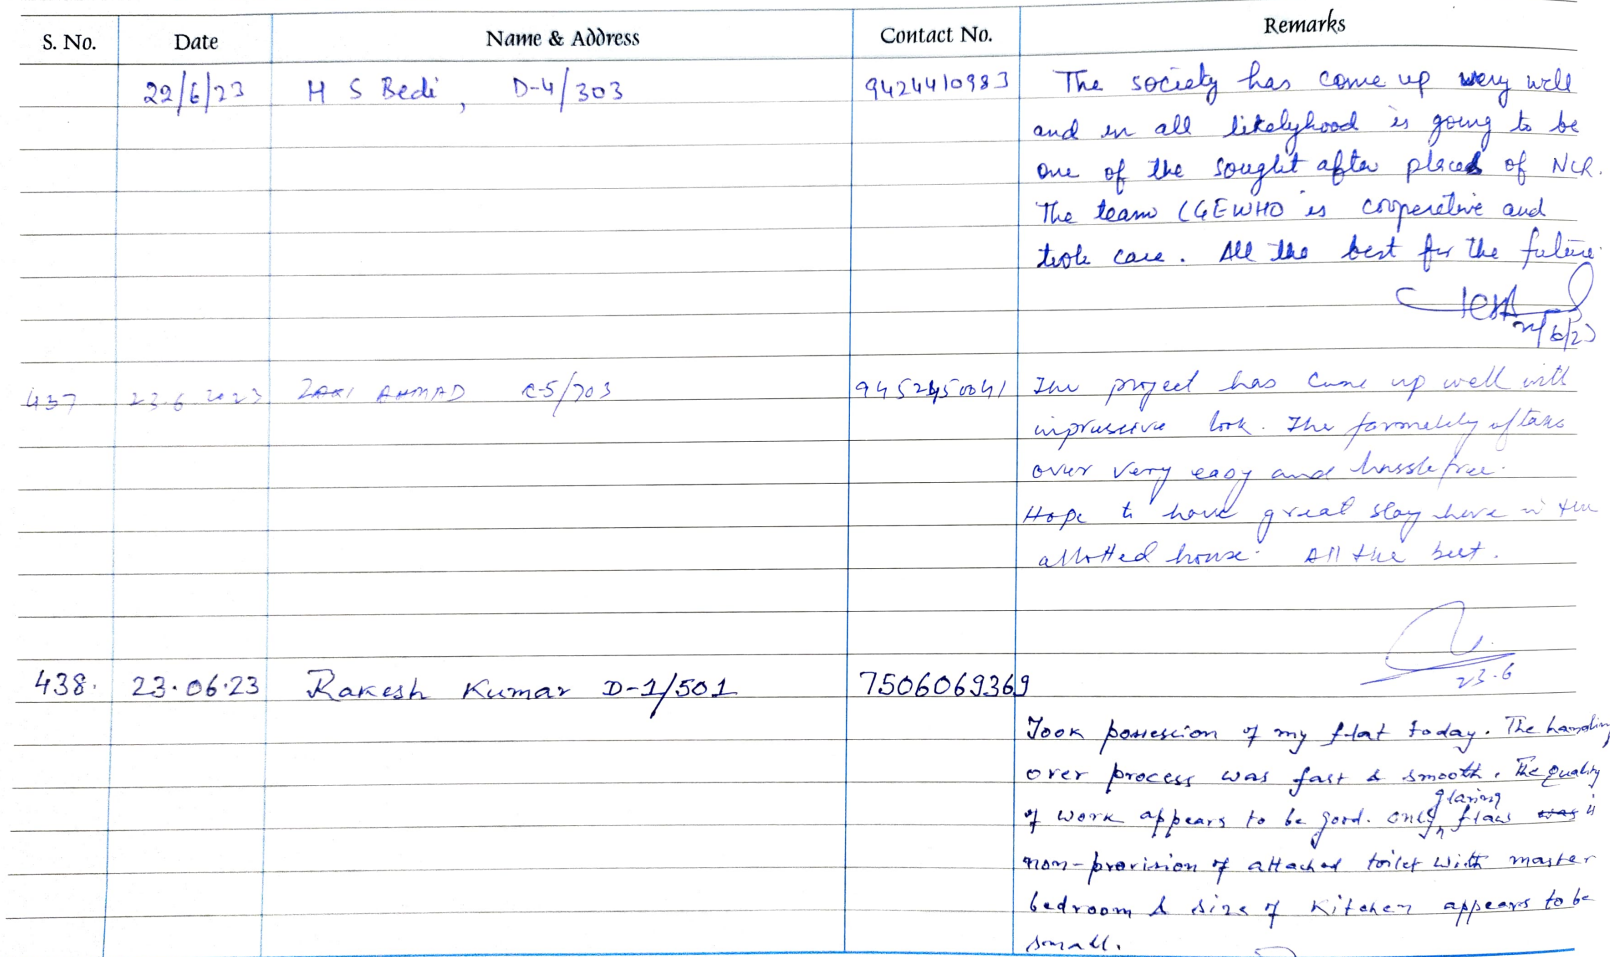 S. No. Date Name & Address Contact No. Remarks
22/6/23 H S Bedi, D-4/303 9424410983 The society has come up very well
and in all likelyhood is going to be
one of the sought after places of NCR.
The team CGEWHO is cooperative and
took care. All the best for the future.
22/6/23
437 23.6.2023 ZAKI AHMAD C-5/703 The project has come up well with
impressive look. The formality of take
over very easy and hassle free.
Hope to have great stay here in the
allotted house. All the best.
23.6
438. 23.06.23 Rakesh Kumar D-1/501 7506069369
Took possession of my flat today. The handing
over process was fast & smooth. The quality
of work appears to be good. only glaring flaw was is
non-provision of attached toilet with master
bedroom & size of kitchen appears to be
small.